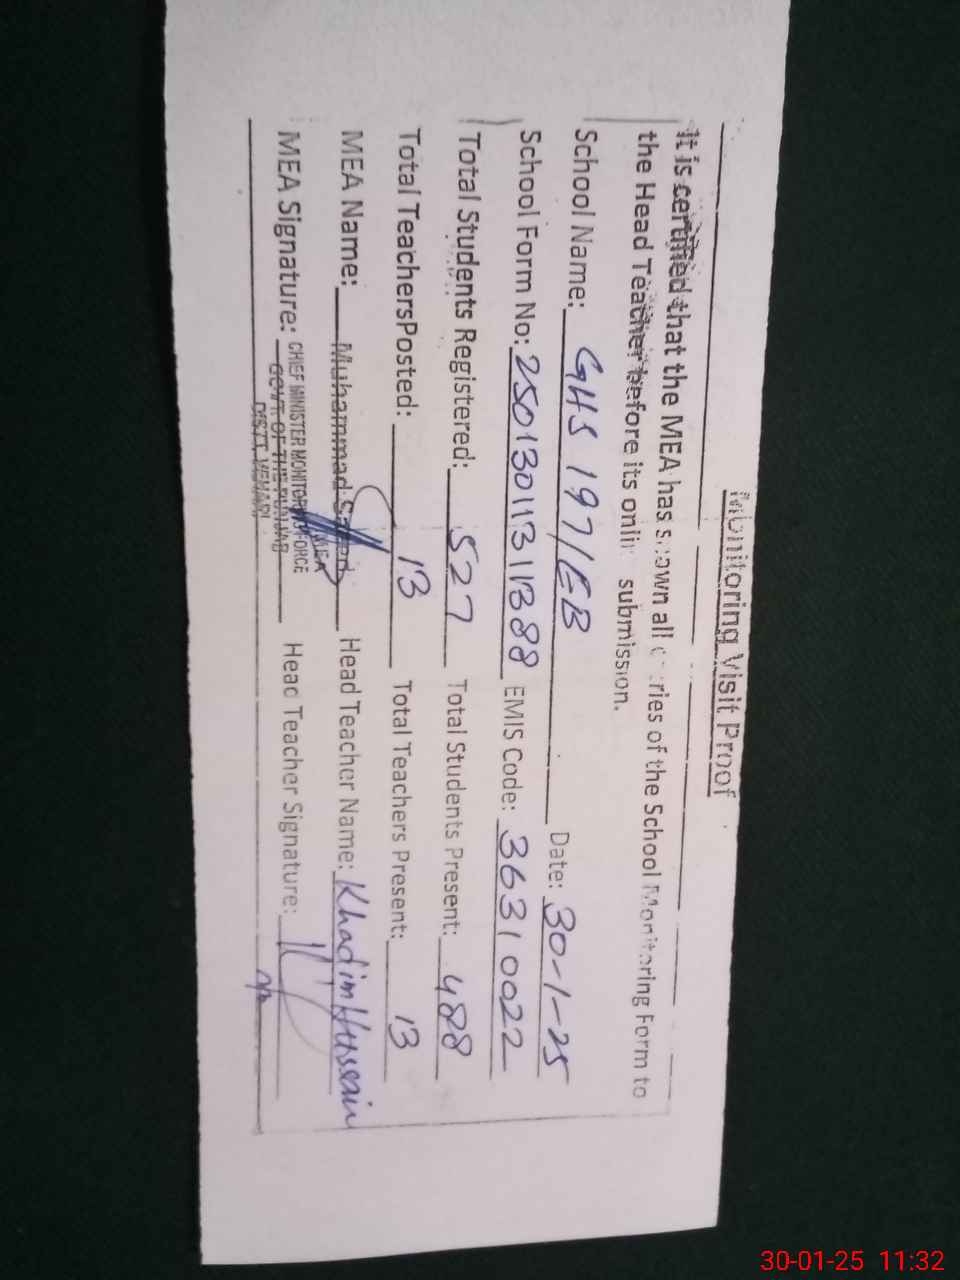 Monitoring Visit Proof
It is certified that the MEA has shown all entries of the School Monitoring Form to
the Head Teacher before its online submission.
School Name: GHS 197/EB Date: 30-1-25
School Form No: EMIS Code: 36310022
Total Students Registered: 527 Total Students Present: 488
Total TeachersPosted: 13 Total Teachers Present: 13
MEA Name: Muhammad Head Teacher Name: Khadim Hussain
MEA Signature: Head Teacher Signature:
MEA
CHIEF MINISTER MONITORING FORCE
GOVT. OF THE PUNJAB
DISTT. VEHARI
30-01-25 11:32